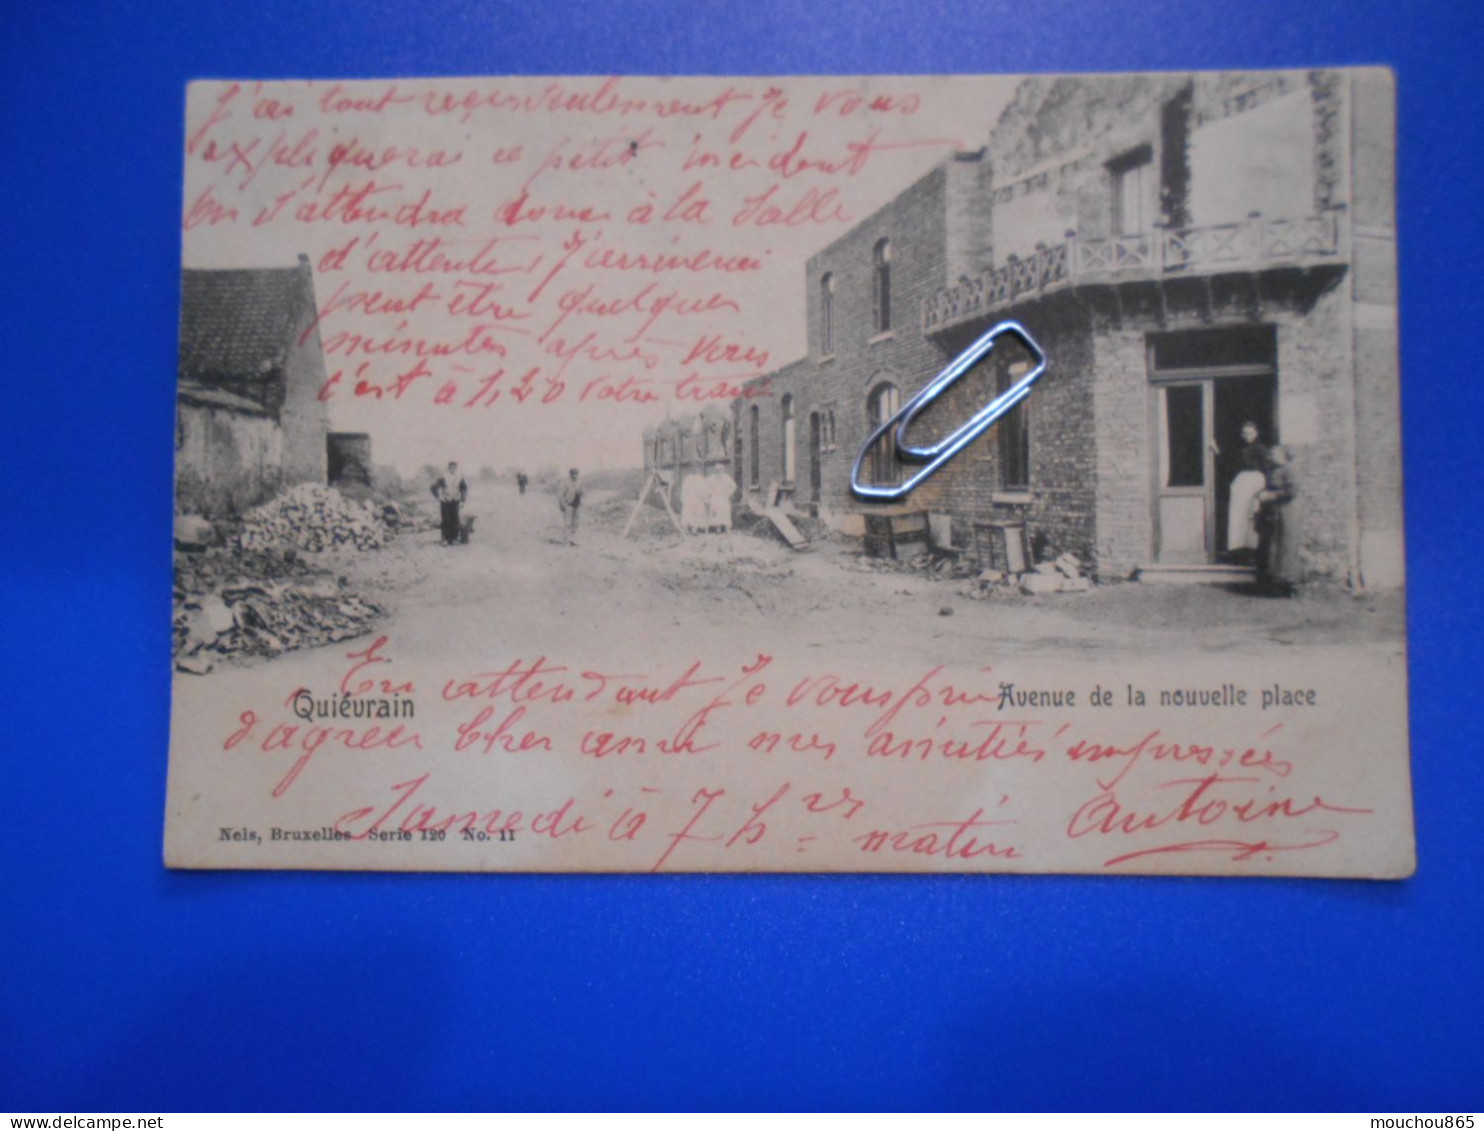 J'ai tout reçu seulement Je vous
expliquerai ce petit incident
On s'attendra donc à la Salle
d'attente, J'arriverai
peut être quelques
minutes après vous
c'est à 1,20 votre train
En attendant Je vous prie
Quiévrain
Avenue de la nouvelle place
d'agréer Cher ami mes amitiés empressées
Samedi à 7 hres matin Antoine
Nels, Bruxelles Serie 120 No. 11
mouchou865